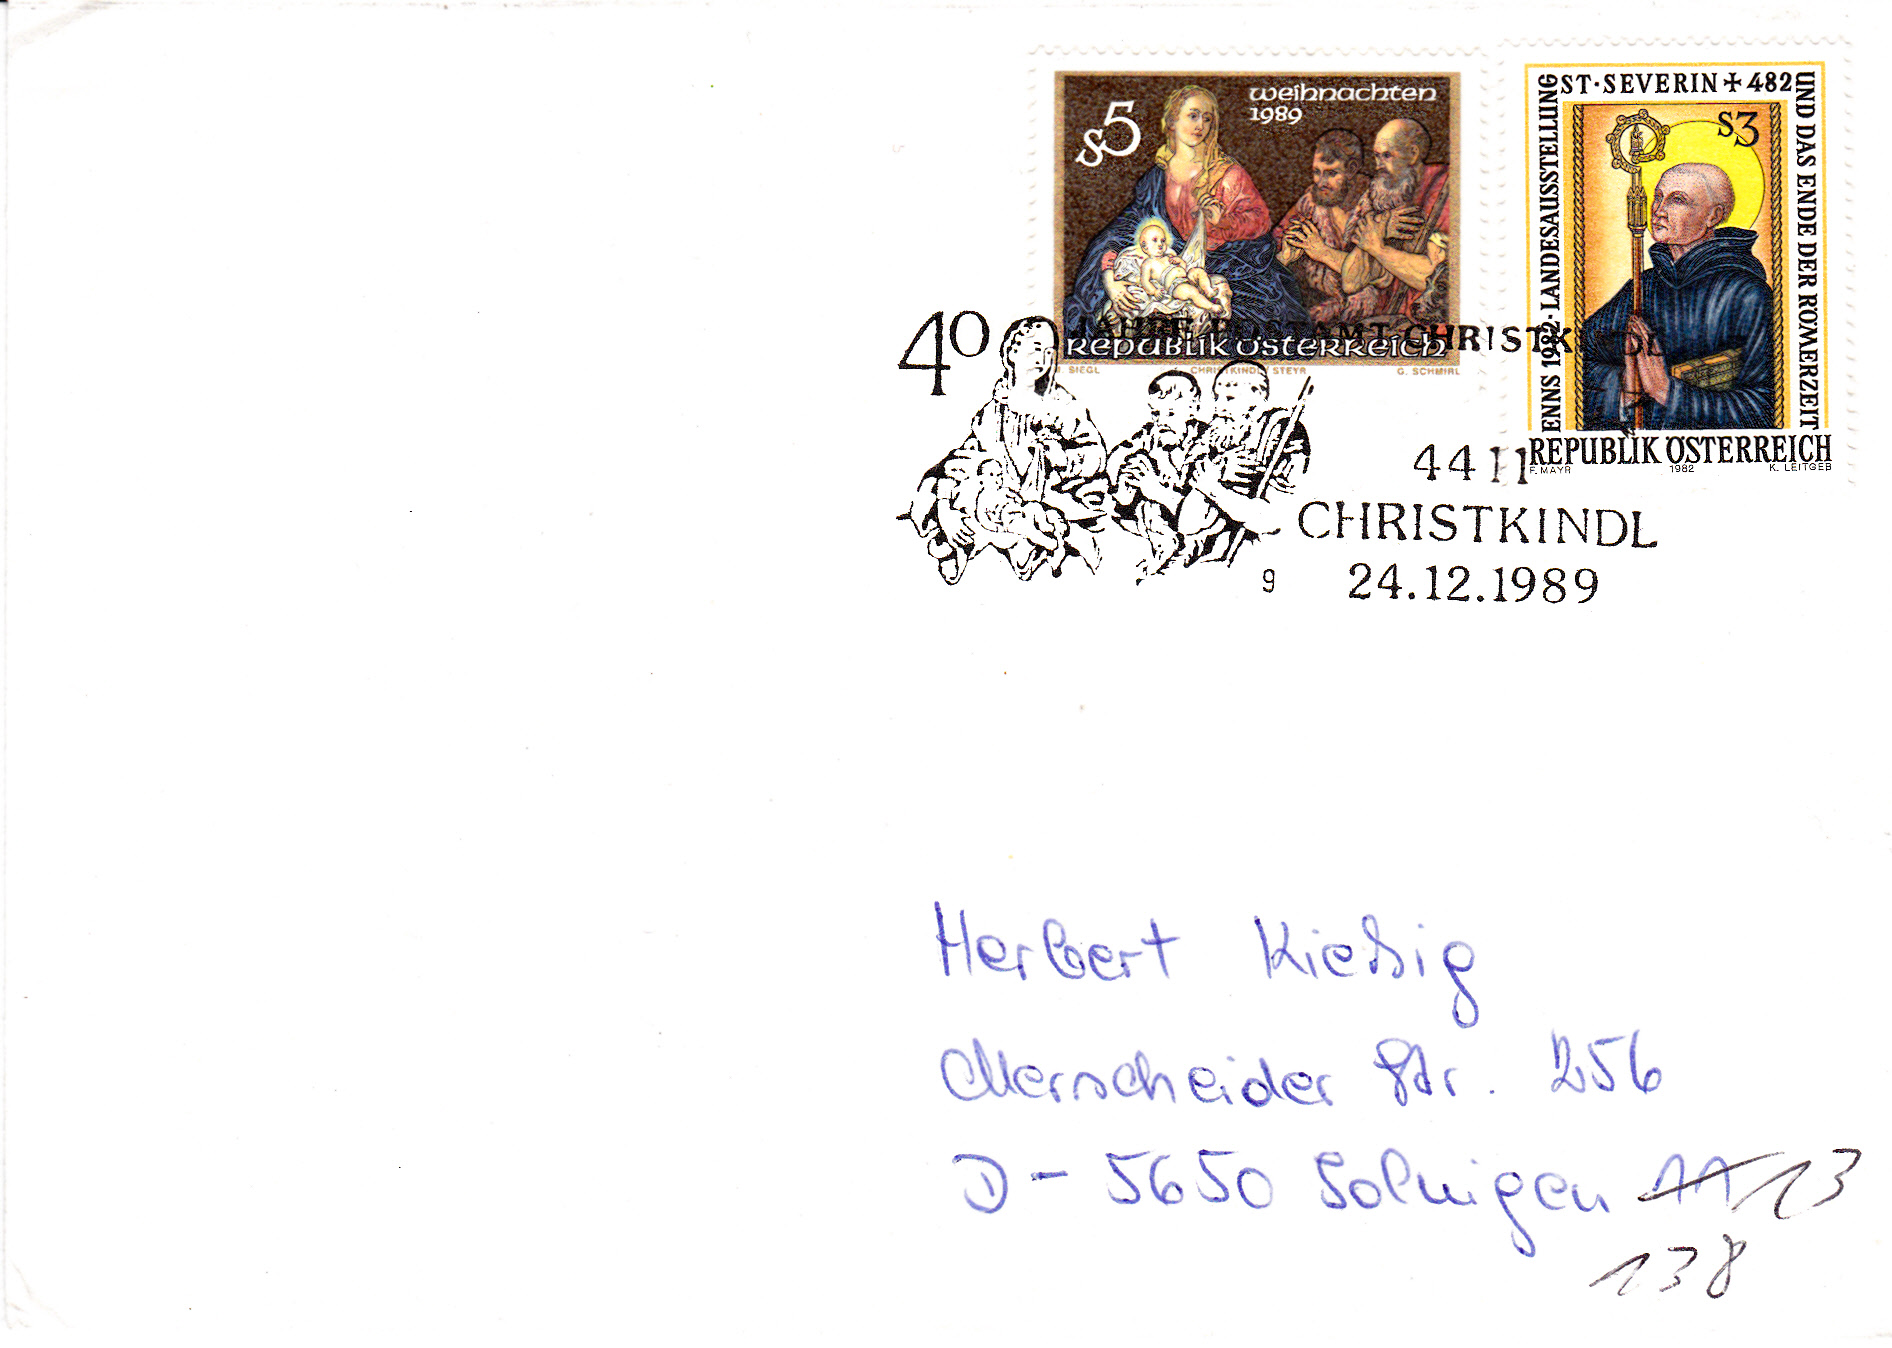 weihnachten
1989
s5
REPUBLIK ÖSTERREICH
SIEGL CHRISTKINDL/STEYR G. SCHMIRL
ENNS 1982 · LANDESAUSSTELLUNG
ST · SEVERIN + 482
UND DAS ENDE DER RÖMERZEIT
s3
REPUBLIK ÖSTERREICH
F. MAYR 1982 K. LEITGEB
40 JAHRE POSTAMT CHRISTKINDL
4411
CHRISTKINDL
9 24.12.1989
Herbert Kießig
Merscheider Str. 256
D - 5650 Solingen 11 13
138